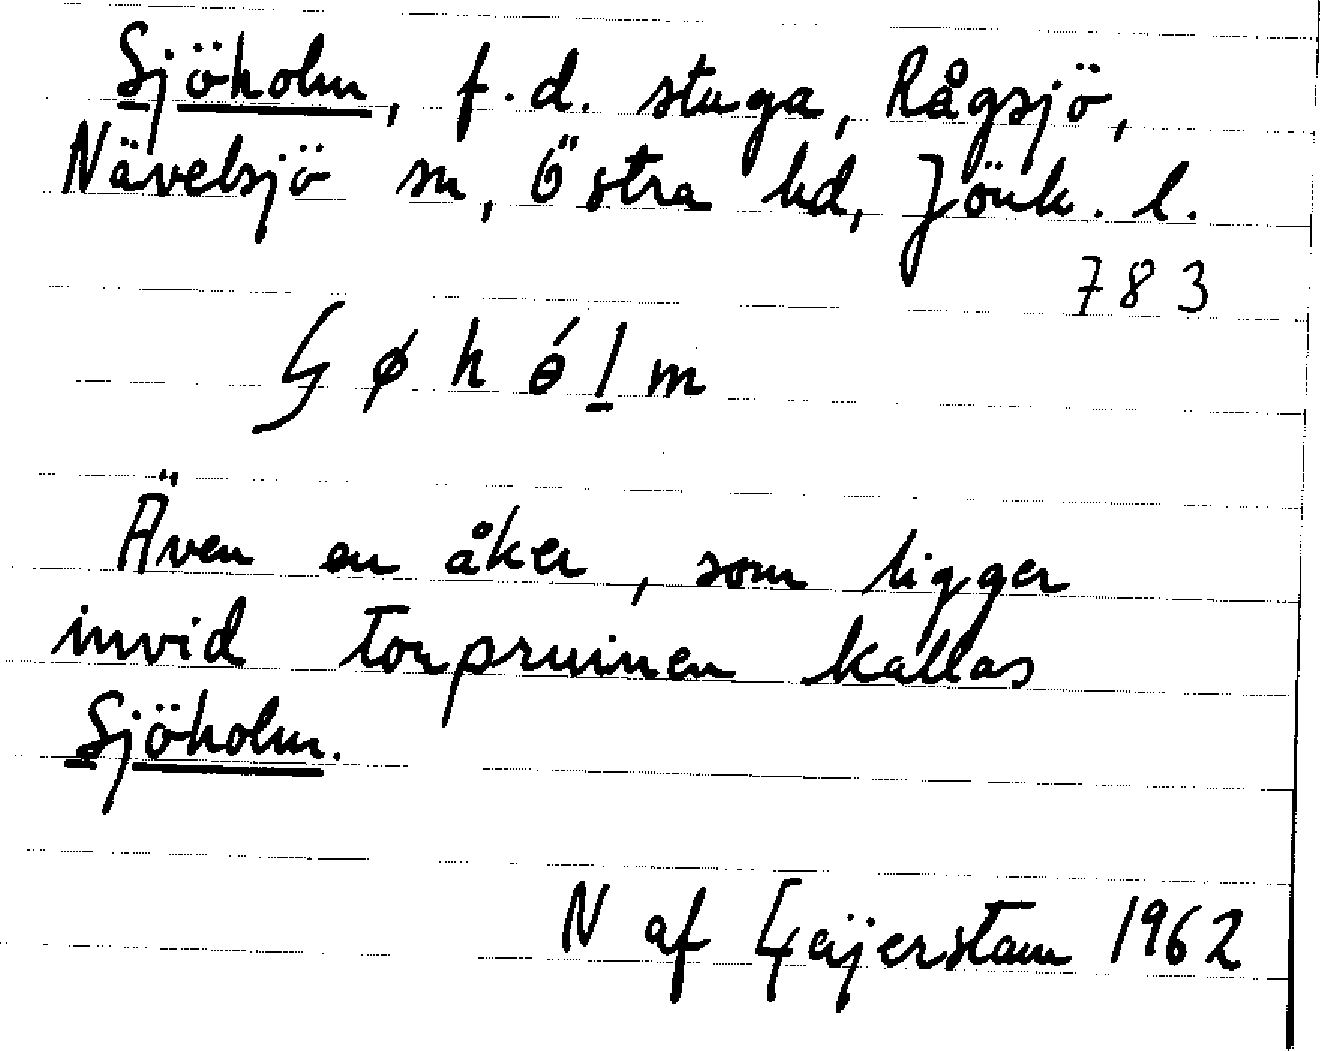 Sjöholm, f.d. stuga, Rågsjö,
Nävelsjö sn, Östra hd, Jönk. l.
783
ʃøhólm
Även en åker, som ligger
invid torpruinen kallas
Sjöholm.
N af Geijerstam 1962